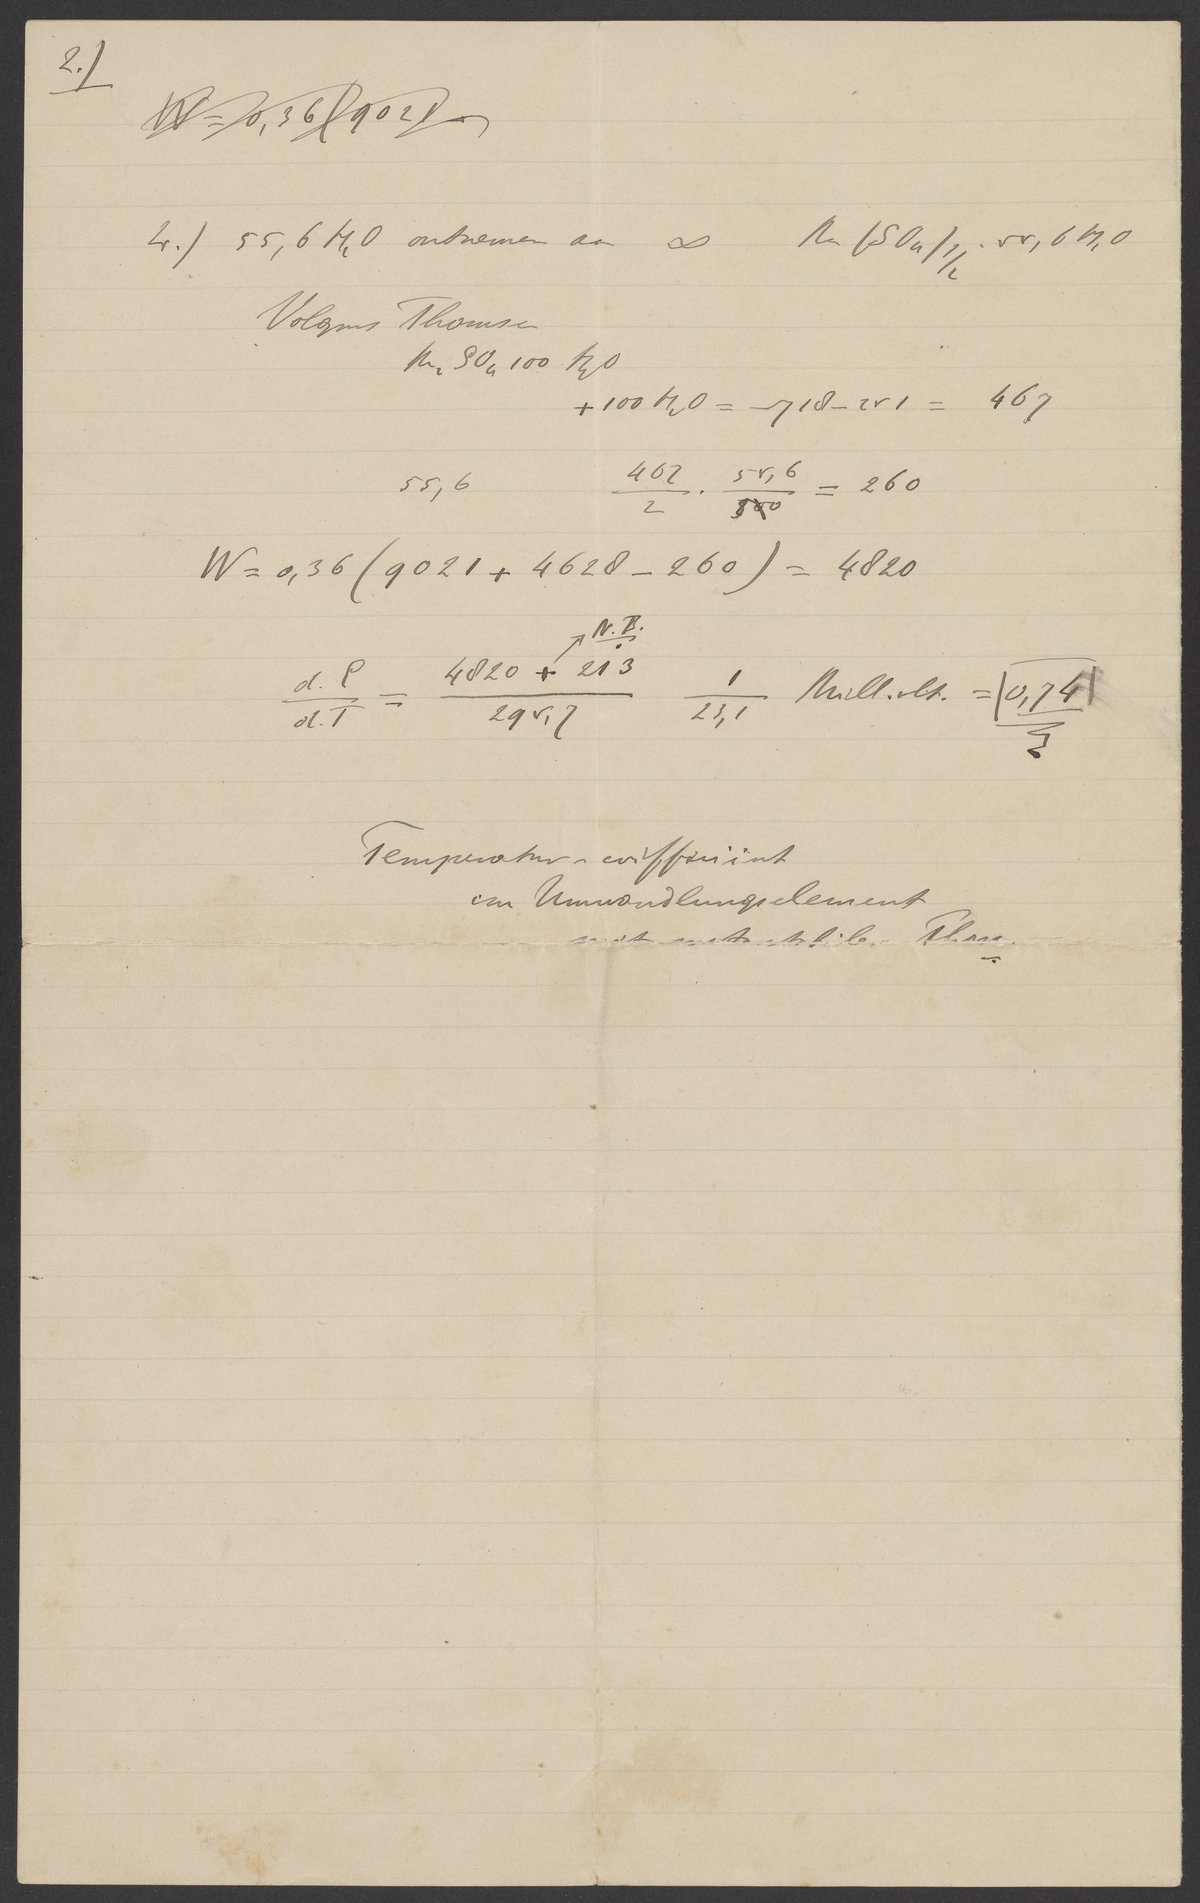 2.)
W = 0,36 (9021
4.) 55,6 H2O ontnemen aan ∞ Na (SO4)1/2 . 55,6 H2O
Volgens Thomsen
Na2 SO4 100 H2O
+ 100 H2O = -718 - 251 = 467
55,6 467/2 . 55,6/ = 260
W = 0,36 (9021 + 4628 - 260) = 4820
N.B.
d.P/d.T = 4820 + 213/295,7 1/23,1 Mill.volt. = 0,74
Temperatur-coëfficiënt
Umwandlungselement